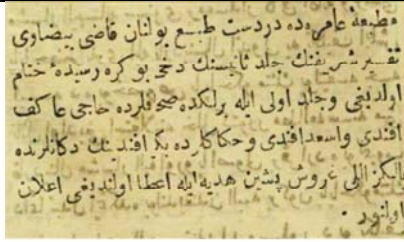 مطبعهٔ عامره‌ده دردست طبع بولنان قاضی بیضاوی
تفسیر شریفنك جلد ثانیسنك دخی بو كره رسیدهٔ ختام
اولدیغی وجلد اولی ایله برلكده صحافلرده حاجی عاكف
افندی واسعد افندی وحكاكلرده بكر افندینك دكانلرنده
یالكز اللی غروش پشین هدیه ایله اعطا اولندیغی اعلان
اولنور ٠